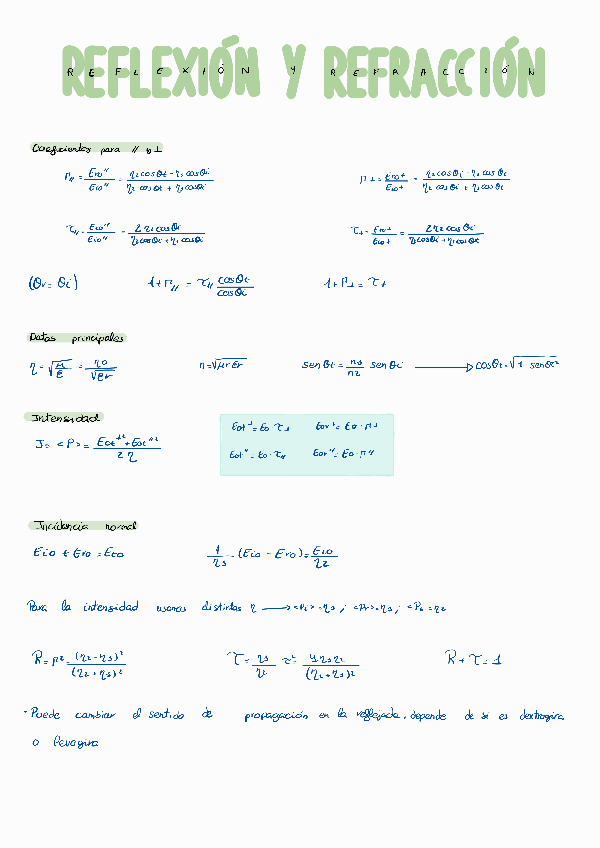 REFLEXIÓN Y REFRACCIÓN
Coeficientes para // y ⊥
Γ// = Ero''/Eio'' = (η2 cosθt - η1 cosθi)/(η2 cosθt + η1 cosθi)    Γ⊥ = Ero⊥/Eio⊥ = (η2 cosθi - η1 cosθt)/(η2 cosθi + η1 cosθt)
τ// = Eto''/Eio'' = 2η2 cosθi/(η2 cosθt + η1 cosθi)    τ⊥ = Eto⊥/Eio⊥ = 2η2 cosθi/(η2 cosθi + η1 cosθt)
(θr = θi)    1 + Γ// = τ// cosθt/cosθi    1 + Γ⊥ = τ⊥
Datos principales
η = √(μ/ε) = η0/√εr    n = √μr εr    senθt = n1/n2 senθi ⟶ cosθt = √1 senθt²
Intensidad
I = <P> = (Eot⊥² + Eot''²)/2η
Eot⊥ = Eo · τ⊥    Eor⊥ = Eo · Γ⊥
Eot'' = Eo · τ//    Eor'' = Eo · Γ''
Incidencia normal
Eio + Ero = Eto    1/η1 (Eio - Ero) = Eto/η2
Para la intensidad usamos distintas η ⟶ <Pi> = η1 ; <Pr> = η1 ; <Pt = η2
R = Γ² = (η2 - η1)²/(η2 + η1)²    τ = η1/η2 τ² = 4η1η2/(η2 + η1)²    R + τ = 1
· Puede cambiar el sentido de propagación en la reflejada, depende de si es dextrogira
o levogira